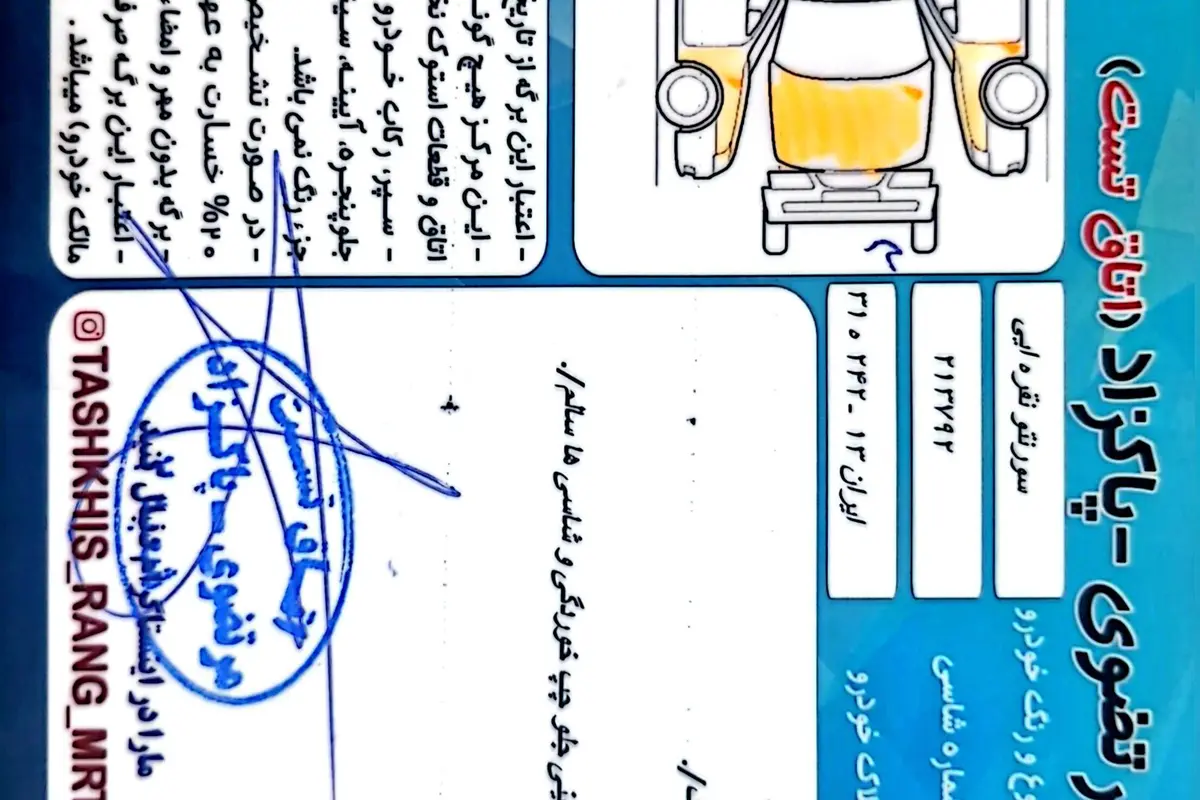 تضوی - پاکزاد (اتاق تست)
و رنگ خودرو
سورنتو نقره ایی
شماسی
۲۱۳۷۹۲
خودرو
ایران ۱۳ - ۲۴۲ ه ۳۱
جلو چپ خوردگی و شاسی ها سالم/.
- اعتبار این برگه از تاریخ
- این مرکز هیچ گونه
اتاق و قطعات استوک
- سپر، رکاب خودرو
جلو پنجره، آیینه،
جزء رنگ نمی باشد.
- در صورت تشخیص
۲۰% خسارت به
- برگه بدون مهر و امضاء
- اعتبار این برگه
مالک خودرو) میباشد.
اتاق تست
مرتضوی - پاکزاد
ما را در اینستاگرام دنبال کنید
TASHKHIS_RANG_MRT